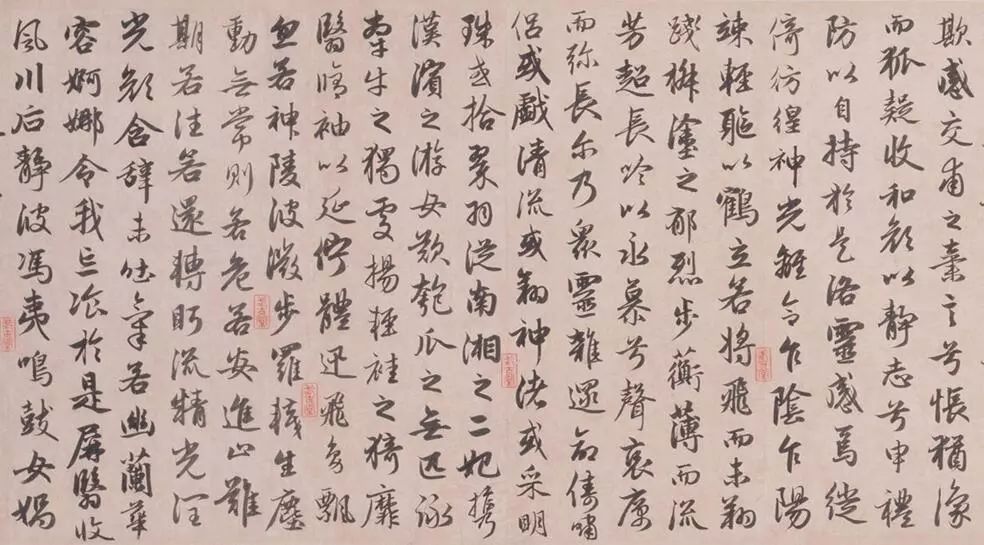 欺感交甫之棄言兮悵猶豫
而狐疑收和顏以靜志兮申禮
防以自持於是洛靈感焉徙
倚彷徨神光離合乍陰乍陽
竦輕軀以鶴立若將飛而未翔
踐椒塗之郁烈步蘅薄而流
芳超長吟以永慕兮聲哀厲
而弥長尔乃眾靈雜遝命儔嘯
侶或戲清流或翔神渚或采明
珠或拾翠羽從南湘之二妃攜
漢濱之游女歎匏瓜之無匹詠
牽牛之獨處揚輕袿之猗靡
翳脩袖以延佇體迅飛鳧飄
忽若神陵波微步羅襪生塵
動無常則若危若安進止難
期若往若還轉眄流精光潤
光顏含辭未吐氣若幽蘭華
容婀娜令我忘飡於是屏翳收
風川后靜波馮夷鳴鼓女媧